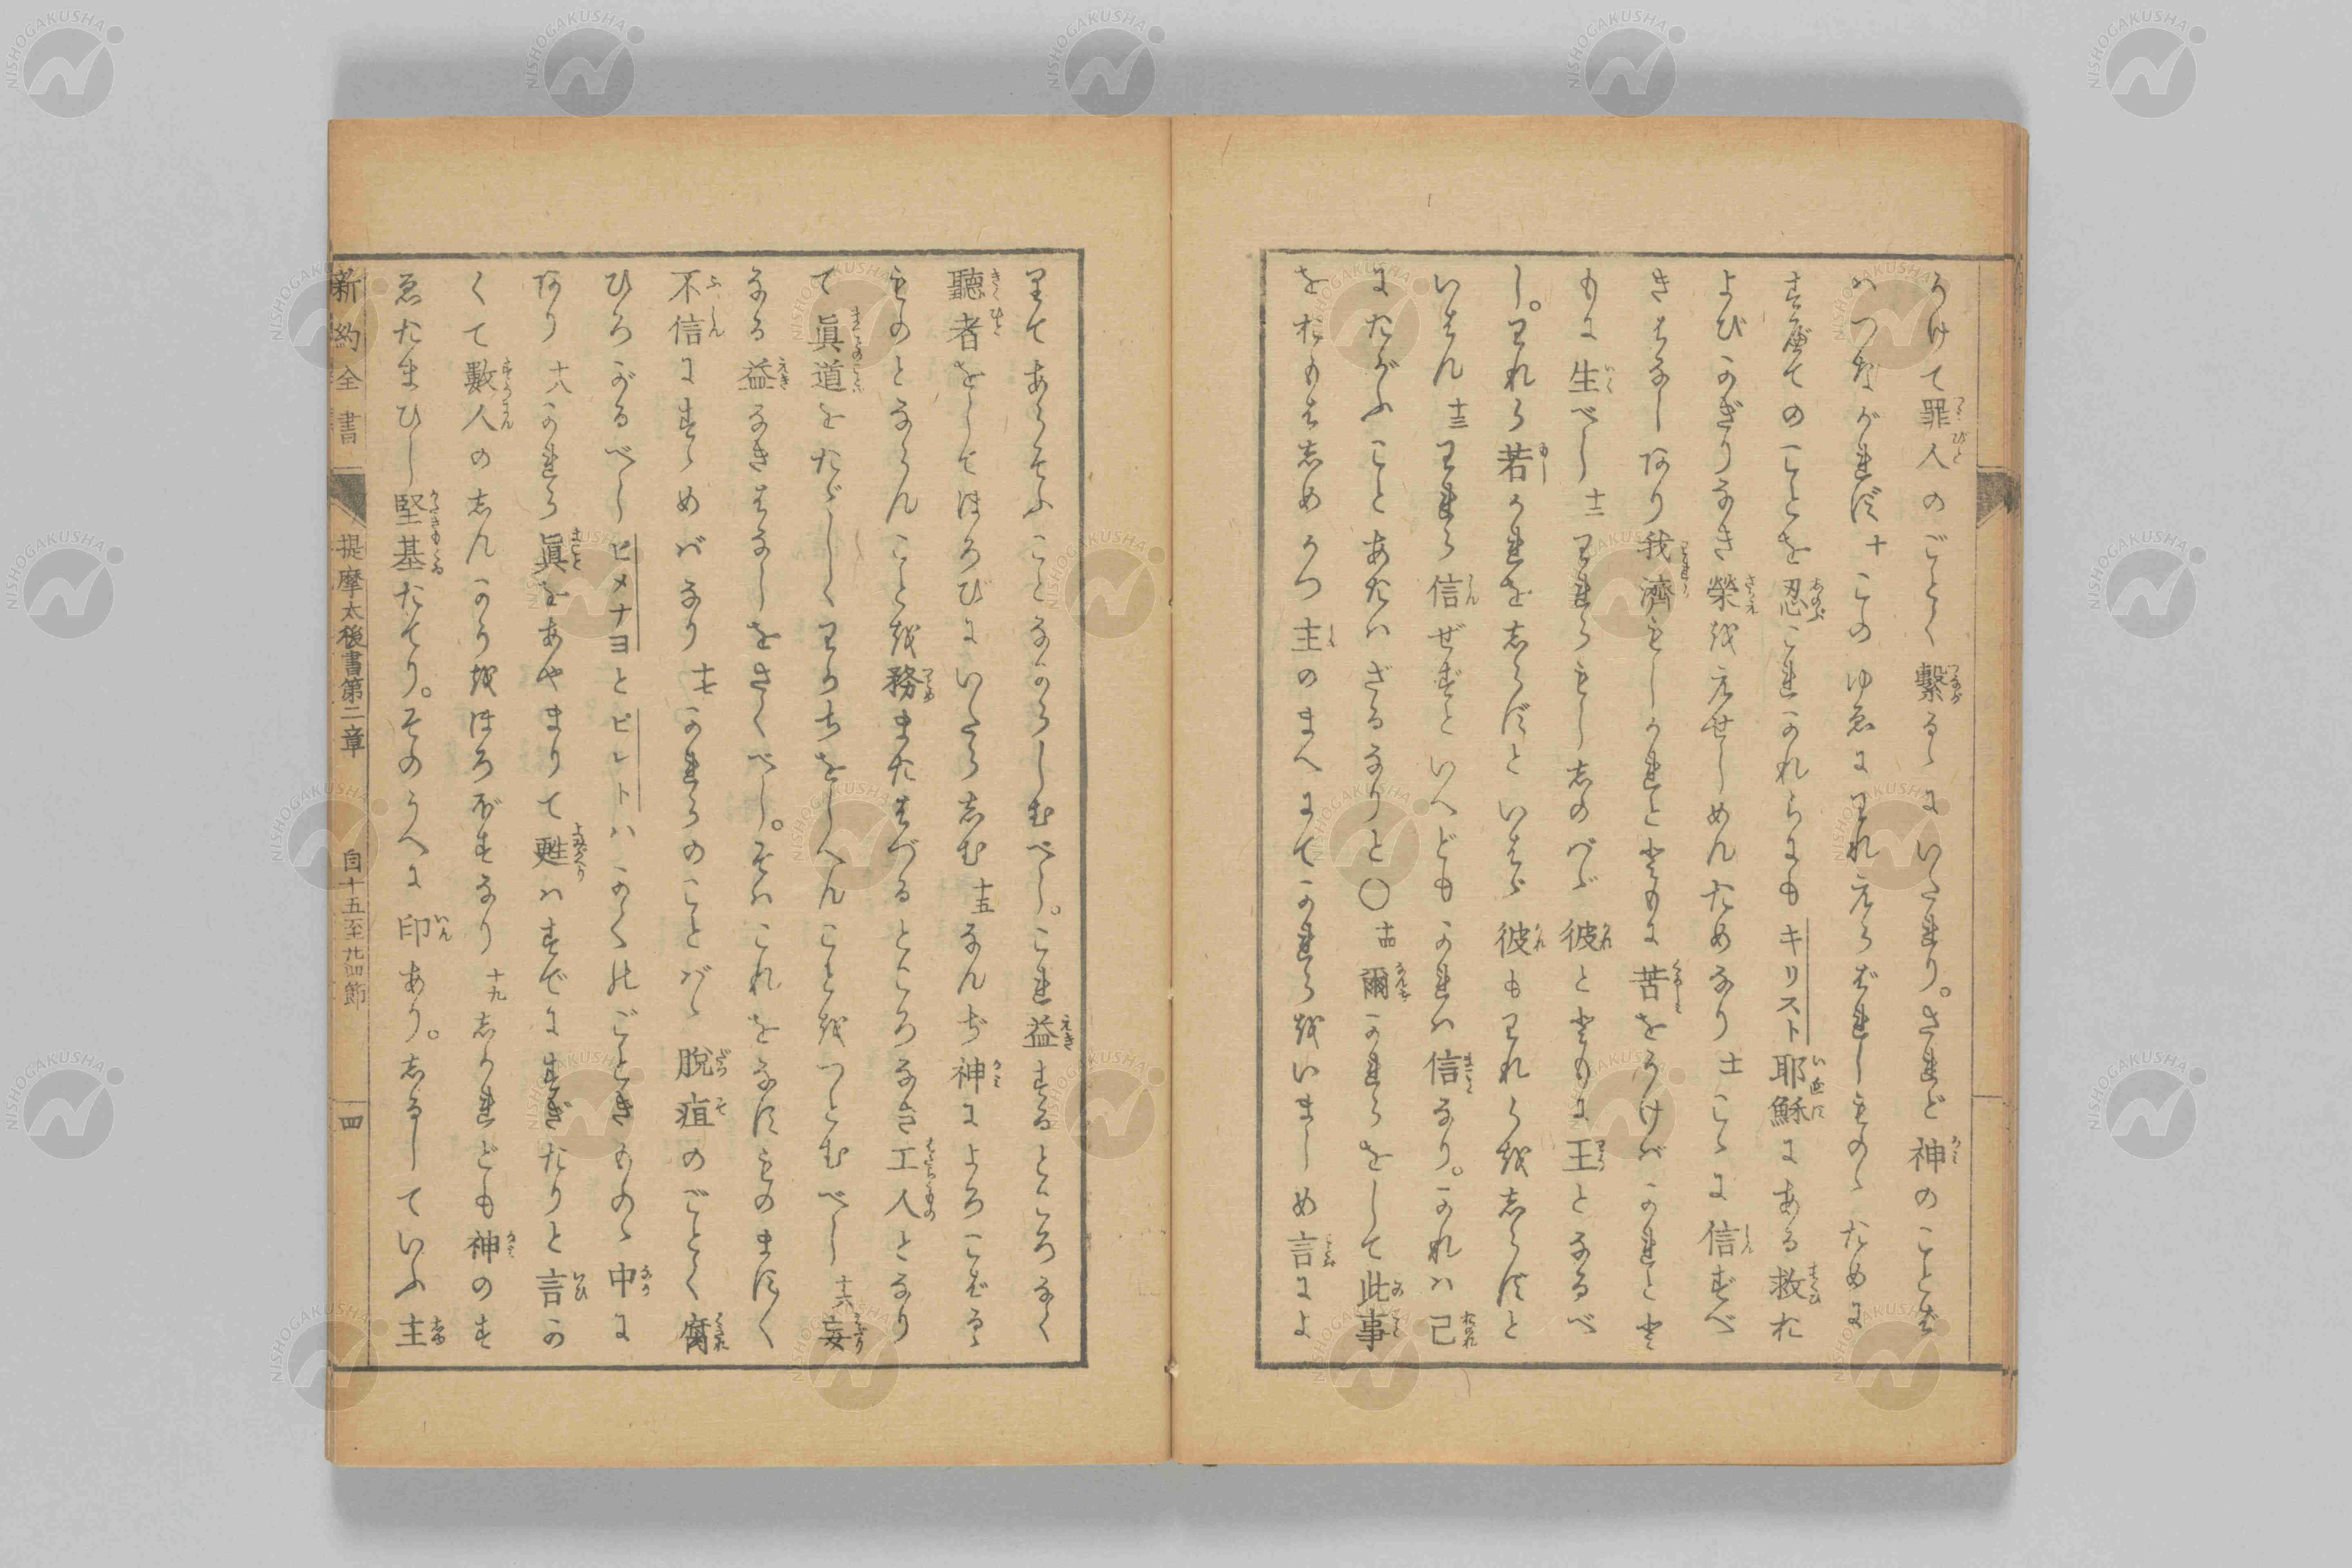 うけて罪人のごとく繫るゝにいたれり。されど神のことば
ハつながれず十このゆゑにわれえらばれしものゝために
すべてのことを忍これかれらにもキリスト耶穌にある救お
よびかぎりなき榮をえせしめんためなり十一こゝに信ずべ
きはなしあり我儕もしかれとともに苦をうけバかれとと
もに生べし十二われらもししのバゞ彼とともに王となるべ
し。われら若かれをしらずといはゞ彼もわれらをしらずと
いはん十三われら信ぜずといへどもかれハ信なり。かれハ己
にたがふことあたハざるなりと〇十四爾かれらをして此事
をおもはしめかつ主のまへにてかれらをいましめ言によ
りてあらそふことなからしむべし。これ益するところなく
聽者をしてほろびにいたらしむ十五なんぢ神によろこばるゝ
ものとならんことを務またはづるところなき工人となり
て眞道をたゞしくわかちをしへんことをつとむべし十六妄
なる益なきはなしをさくべし。そハこれをなすものますく
不信にすゝめバなり十七かれらのことバゝ脫疽のごとく腐
ひろがるべしヒメナヨとピレトハかくのごときものゝ中に
あり十八かれら眞をあやまりて甦ハすでにすぎたりと言か
くて數人のしんかうをほろぼすなり十九しかれども神のす
ゑたまひし堅基たてり。そのうへに印あり。しるしていふ主
新約全書
提摩太後書第二章
自十五至廿四節
四